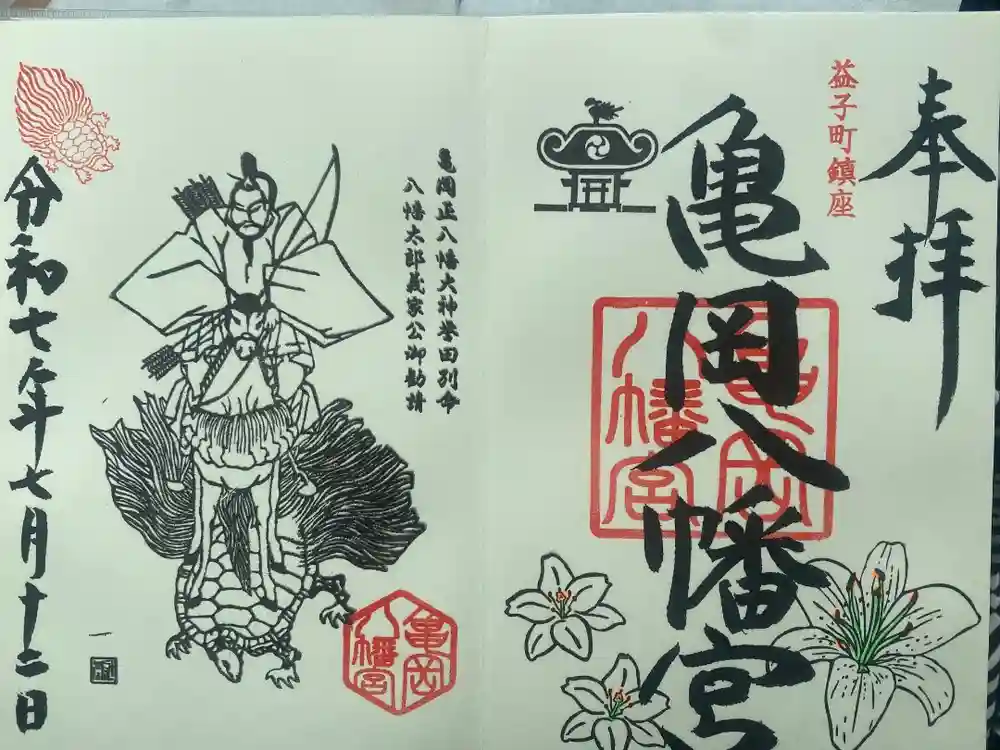 奉拝
益子町鎮座
亀岡八幡宮
亀岡八幡宮
亀岡正八幡大神誉田別命
八幡太郎義家公御勧請
亀岡八幡宮
令和七年七月十二日